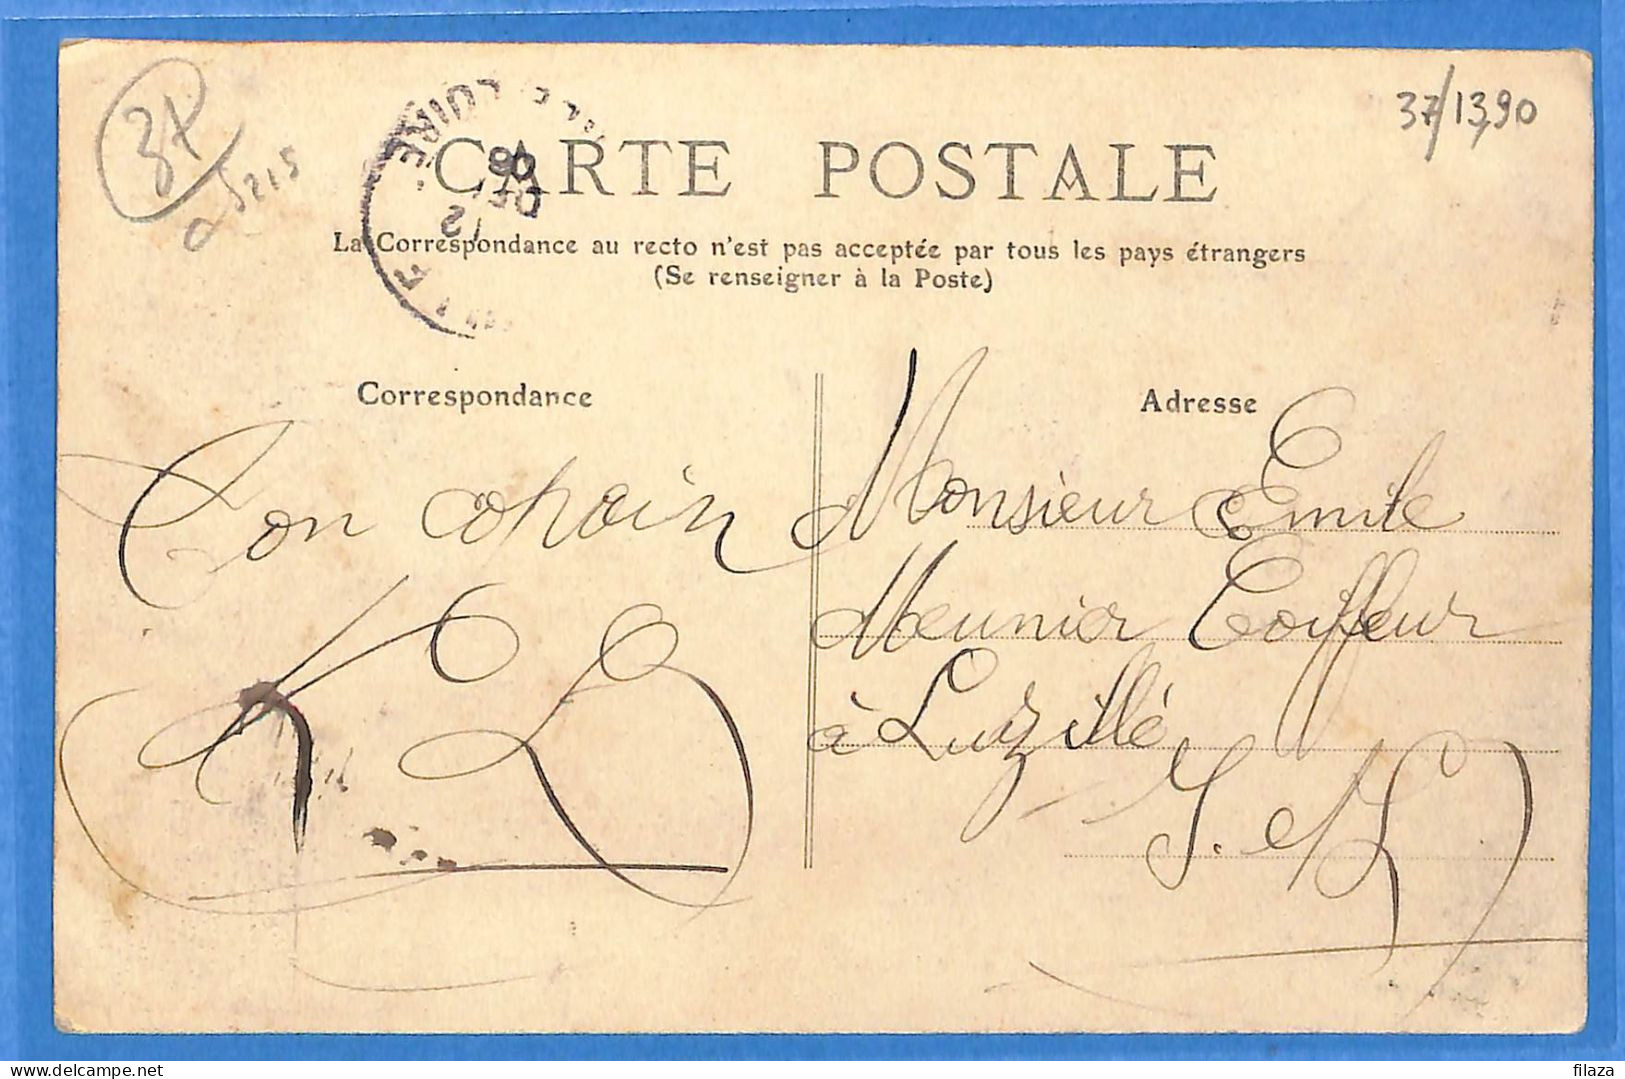 37
a 5215
37/1390
CARTE POSTALE
La Correspondance au recto n'est pas acceptée par tous les pays étrangers
(Se renseigner à la Poste)
LOIRE
12
DEC
08
Correspondance
Ton copain
Adresse
Monsieur Emile
Meunier Coiffeur
à Luzillé
I. et L
filaza